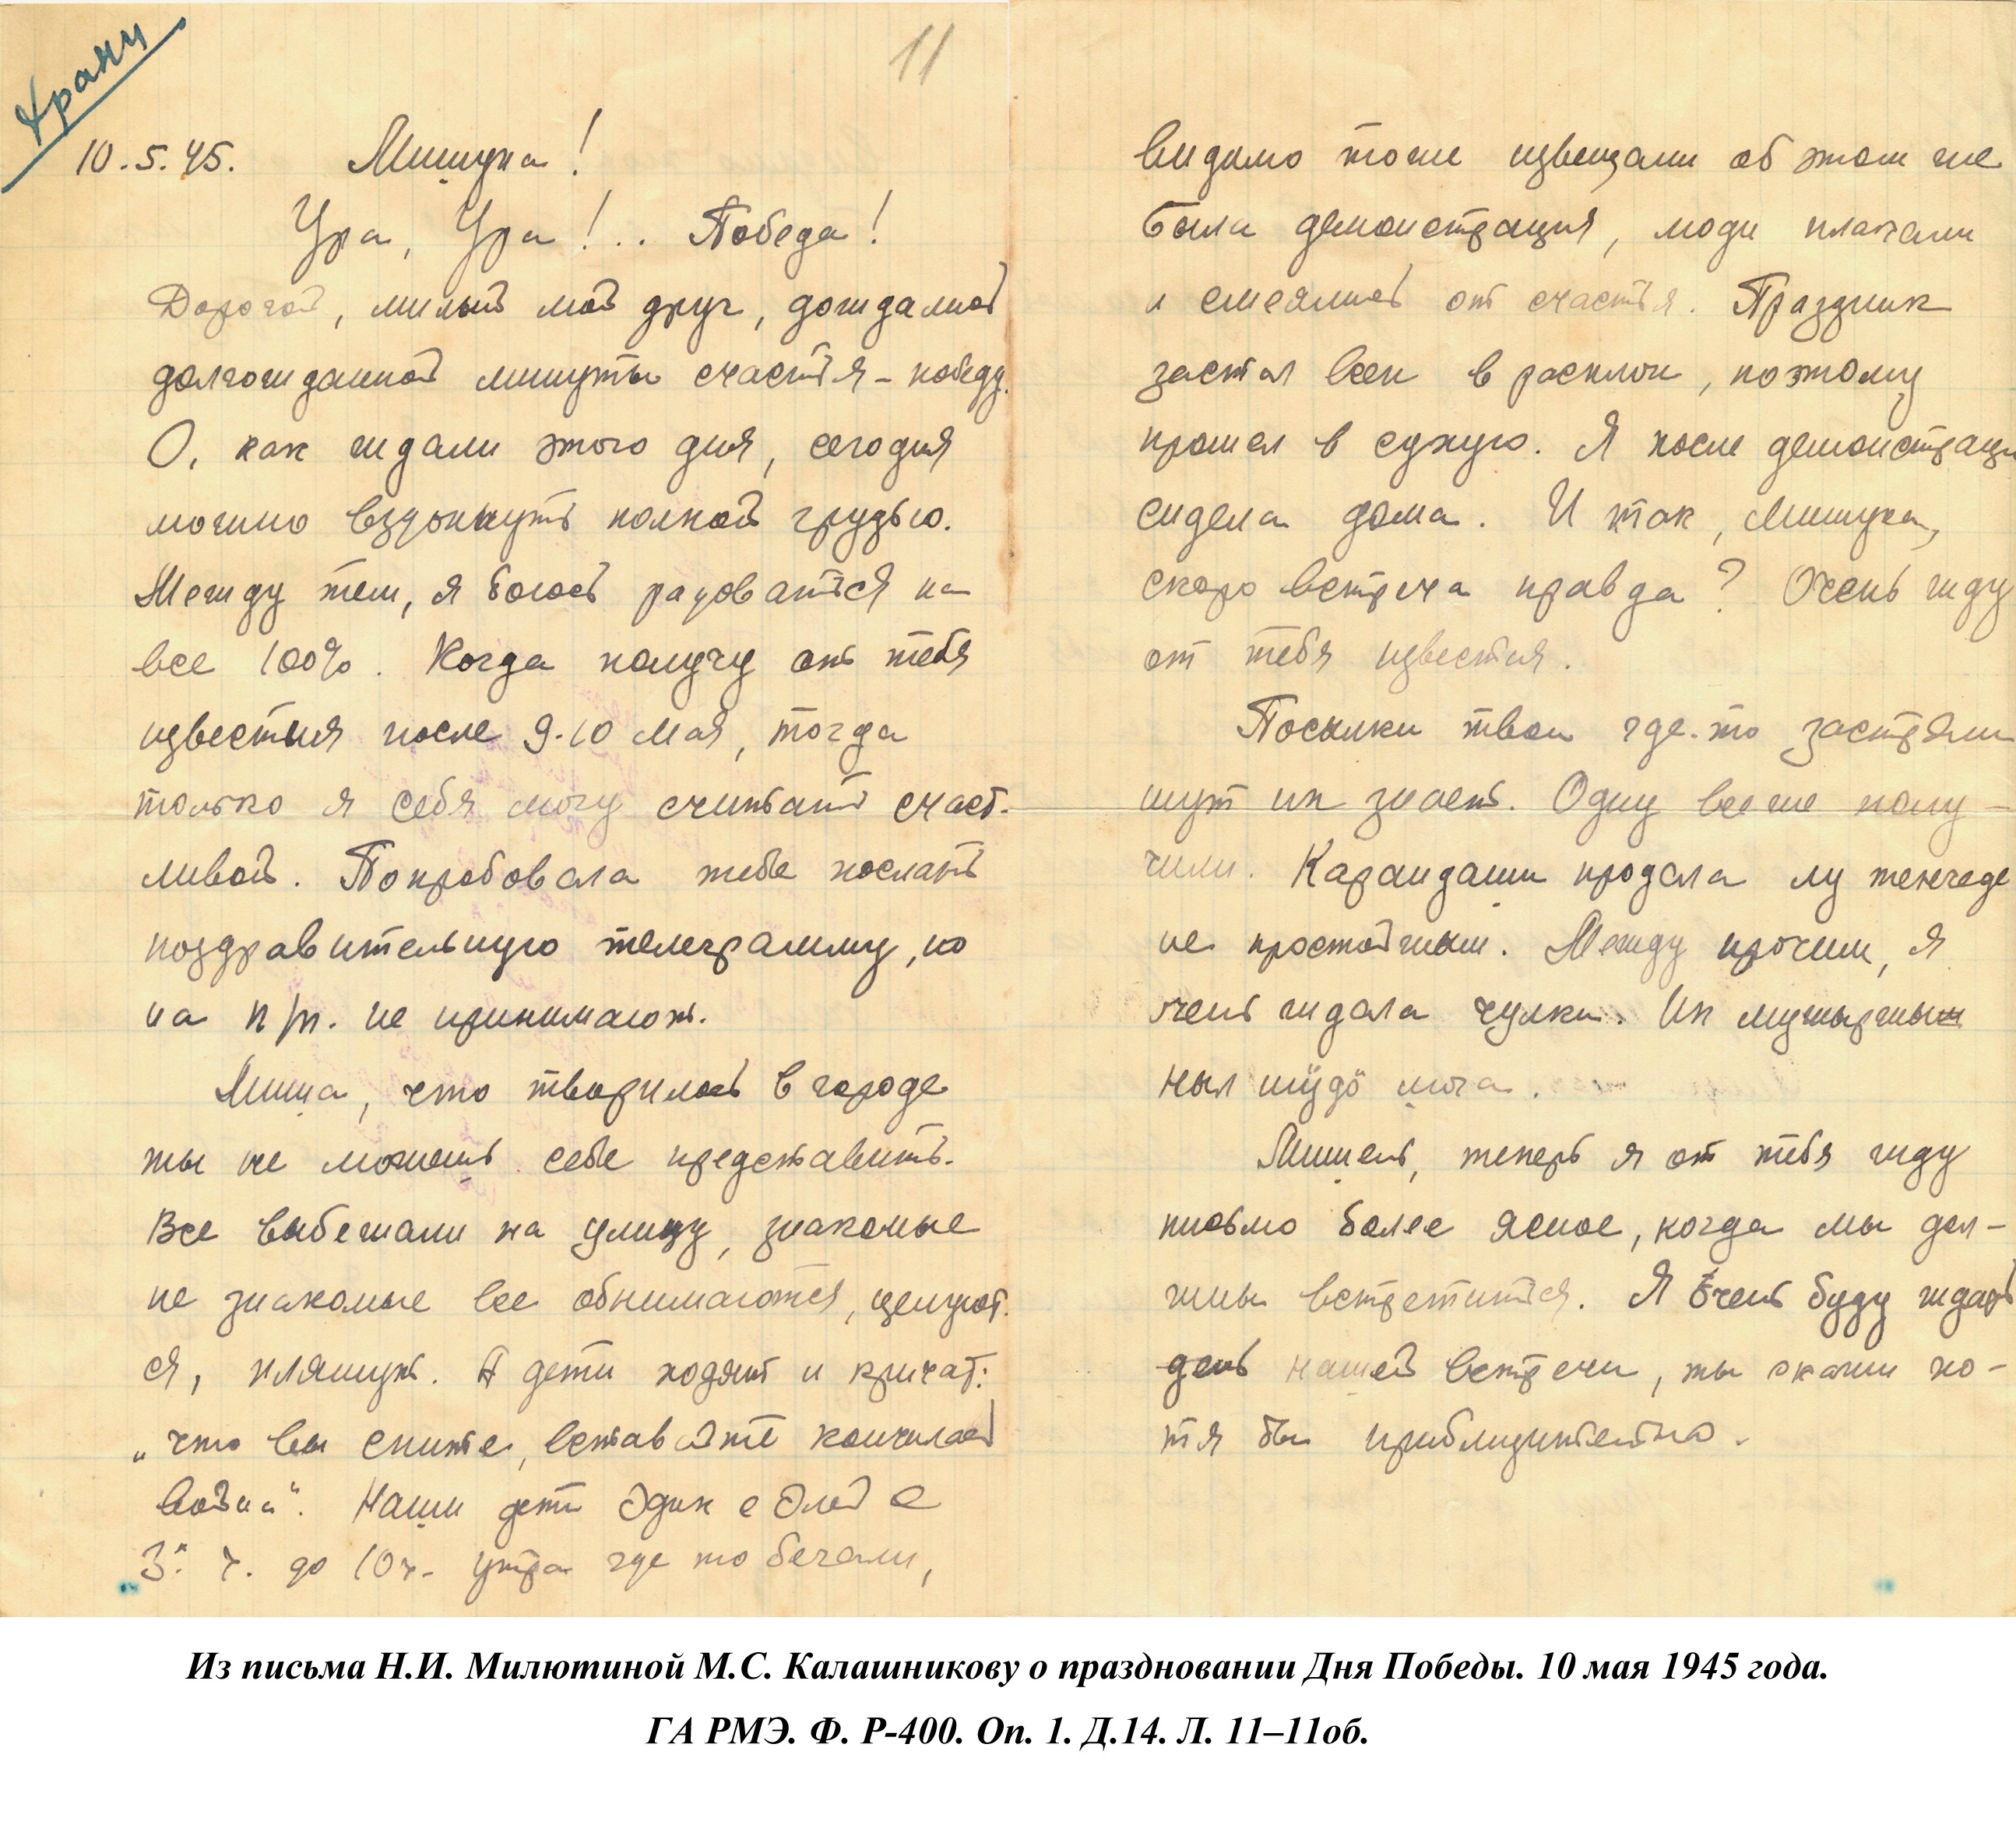 Храни
11
10.5.45. Мишука!
Ура, Ура!.. Победа!
Дорогой, милый мой друг, дождались
долгожданной минуты счастья - победу.
О, как ждали этого дня, сегодня
можно вздохнуть полной грудью.
Между тем, я боюсь радоваться на
все 100%. Когда получу от тебя
известия после 9-10 мая, тогда
только я себя могу считать счаст-
ливой. Попробовала тебе послать
поздравительную телеграмму, но
на п/п. не принимают.
Миша, что творилось в городе
ты не можешь себе представить.
Все выбежали на улицу, знакомые
не знакомые все обнимаются, целуют-
ся, пляшут. А дети ходят и кричат:
„что вы спите, вставайте кончилась
война". Наши дети Эдик с Элей с
3х ч. до 10ч. утра где то бегали,
видимо тоже извещали об этом же
Была демонстрация, люди плакали
и смеялись от счастья. Праздник
застал всех в расплох, поэтому
прошел в сухую. Я после демонстраци
сидела дома. И так, Мишука,
скоро встреча правда? Очень жду
от тебя известия.
Посылки твои где-то застряли
шут их знает. Одну все же полу-
чили. Карандаши продала
не Между прочим, я
очень ждала чулки. Их
ныл шӱдӧ
Мишень, теперь я от тебя жду
письмо более ясное, когда мы дол-
жны встретиться. Я очень буду ждать
день нашей встречи, ты скажи хо-
тя бы приблизительно.
Из письма Н.И. Милютиной М.С. Калашникову о праздновании Дня Победы. 10 мая 1945 года.
ГА РМЭ. Ф. Р-400. Оп. 1. Д.14. Л. 11–11об.